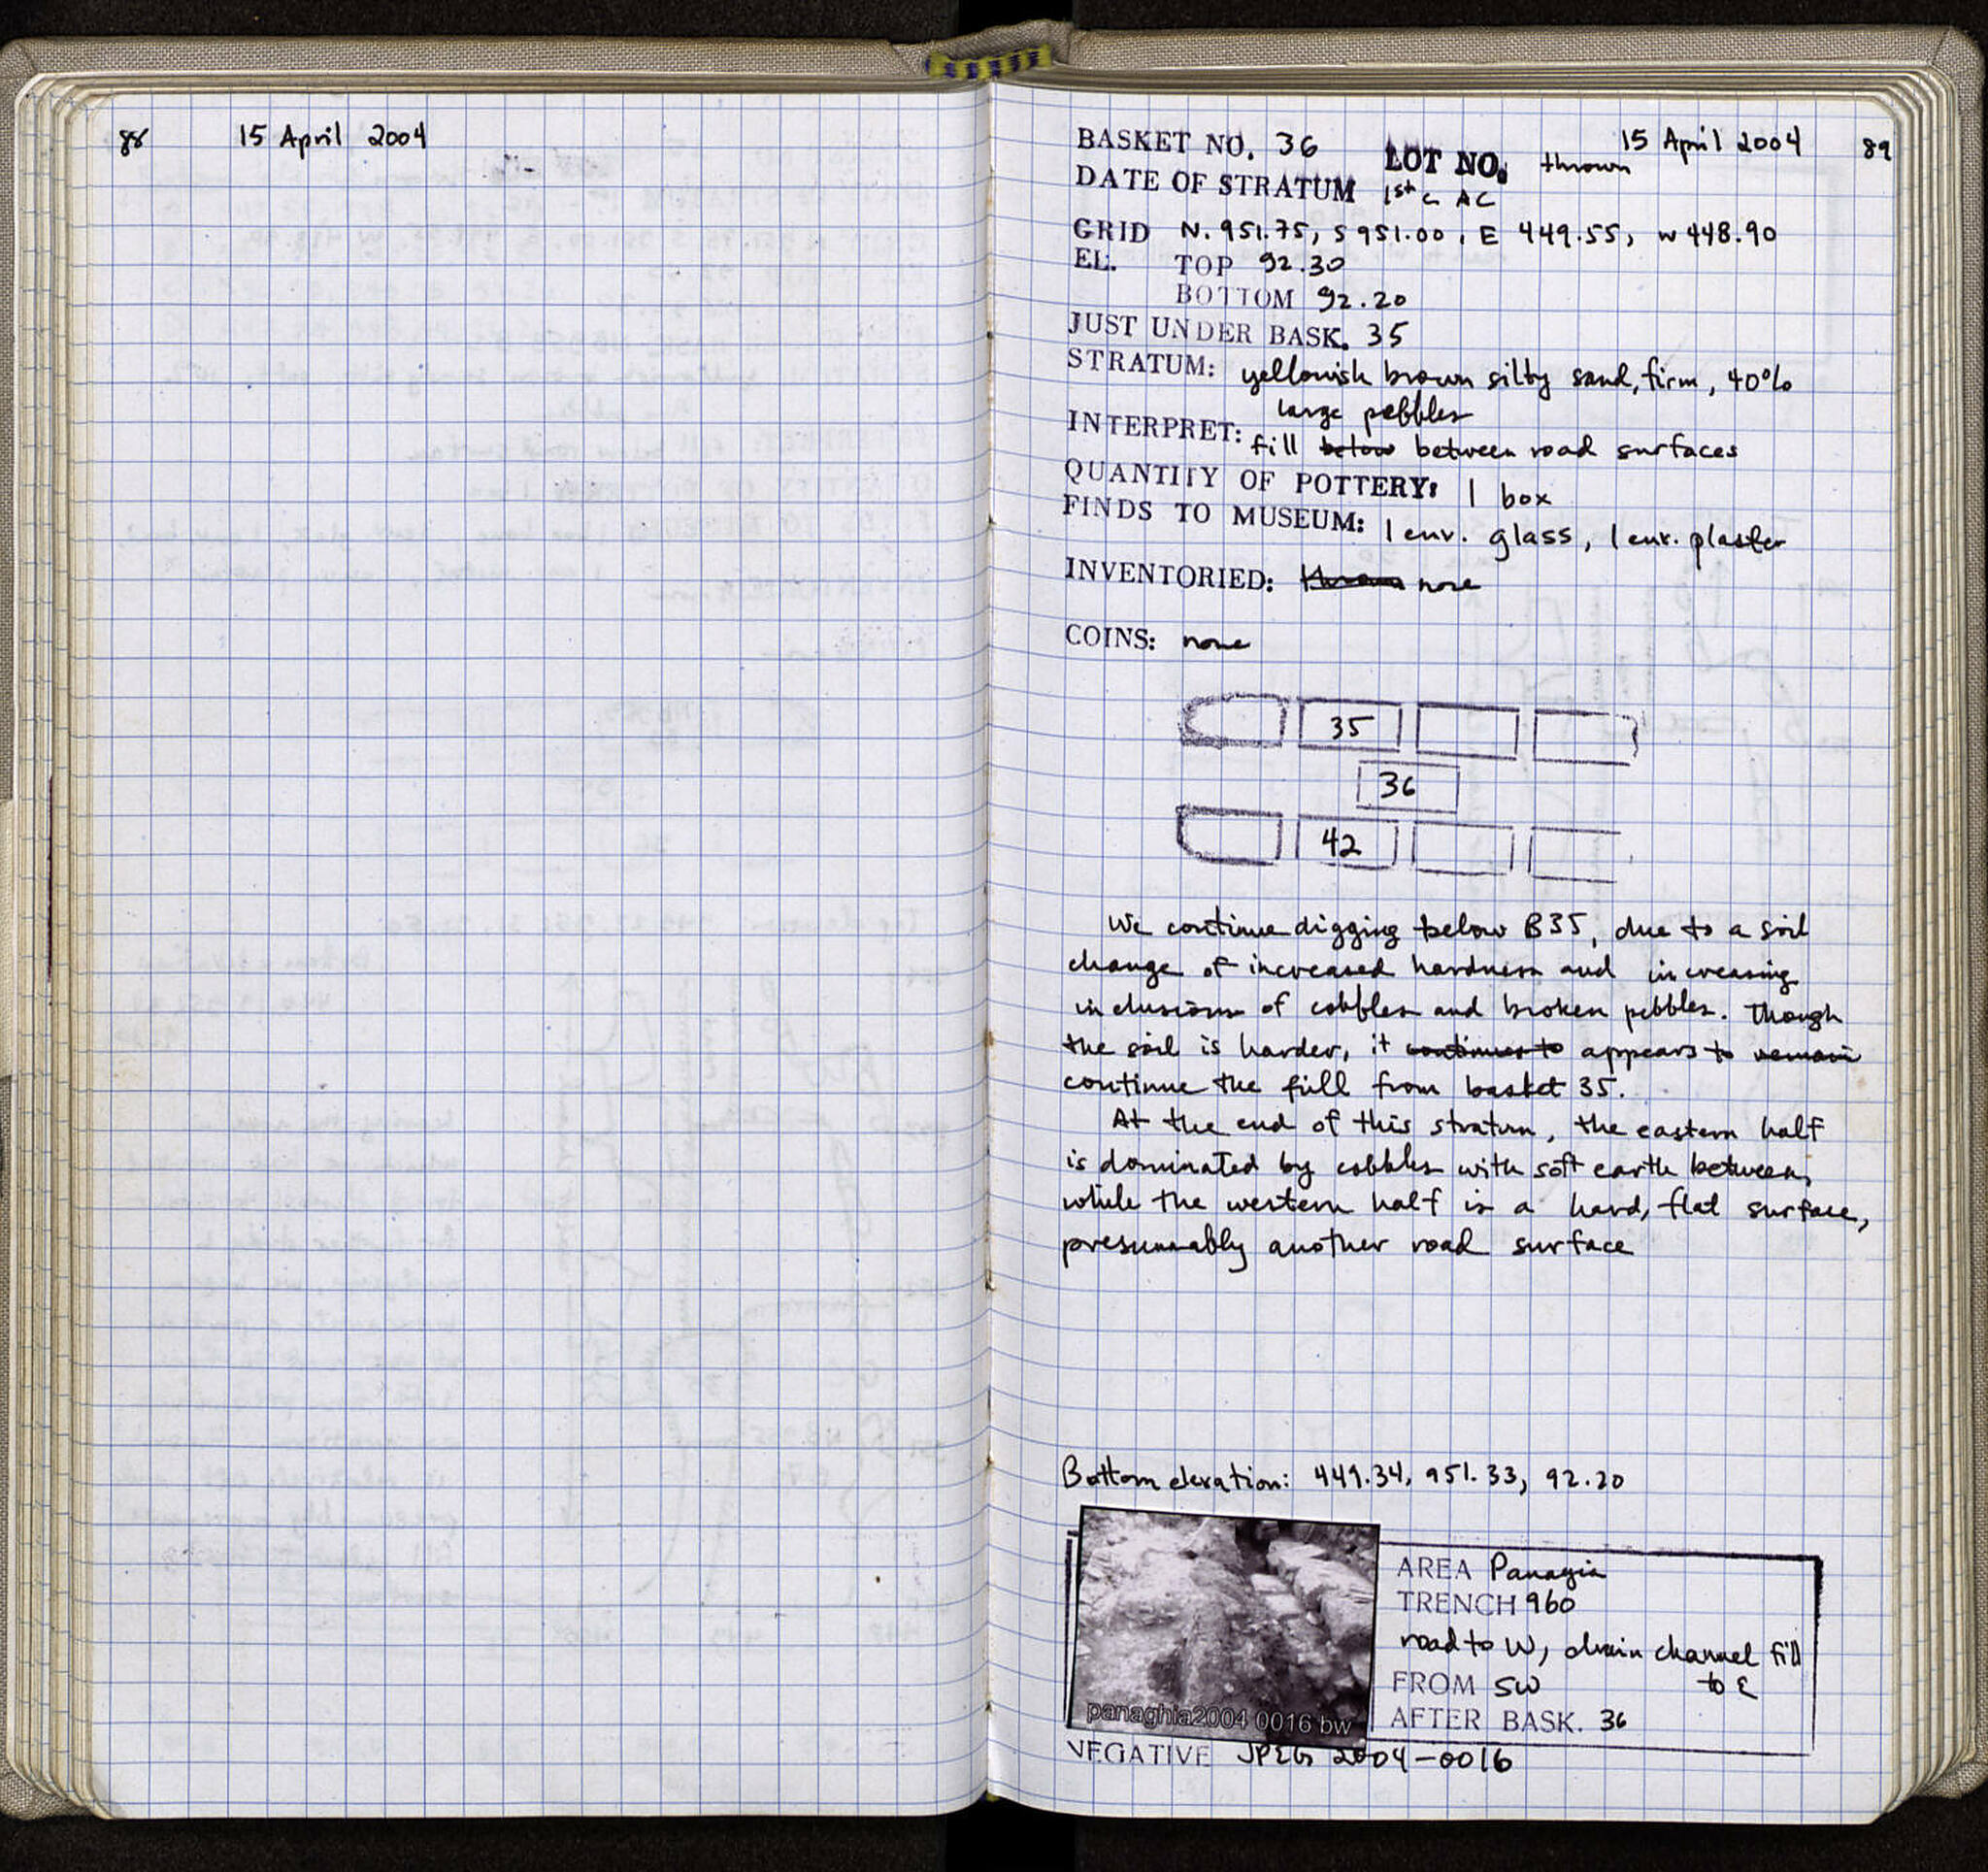 88 15 April 2004
15 April 2004 89
BASKET NO. 36 LOT NO. thrown
DATE OF STRATUM 1st c AC
GRID N. 951.75, S 951.00, E 449.55, W 448.90
EL. TOP 92.30
BOTTOM 92.20
JUST UNDER BASK. 35
STRATUM: yellowish brown silty sand, firm, 40%
large pebbles
INTERPRET: fill below between road surfaces
QUANTITY OF POTTERY: 1 box
FINDS TO MUSEUM: 1 env. glass, 1 env. plaster
INVENTORIED: thrown none
COINS: none
35
36
42
We continue digging below B35, due to a soil
change of increased hardness and increasing
inclusions of cobbles and broken pebbles. Though
the soil is harder, it continues to appears to remain
continue the fill from basket 35.
At the end of this stratum, the eastern half
is dominated by cobbles with soft earth between,
while the western half is a hard, flat surface,
presumably another road surface
Bottom elevation: 449.34, 951.33, 92.20
panaghia2004 0016 bw
AREA Panagia
TRENCH 960
road to W, drain channel fill
FROM SW to E
AFTER BASK. 36
NEGATIVE JPEG 2004-0016